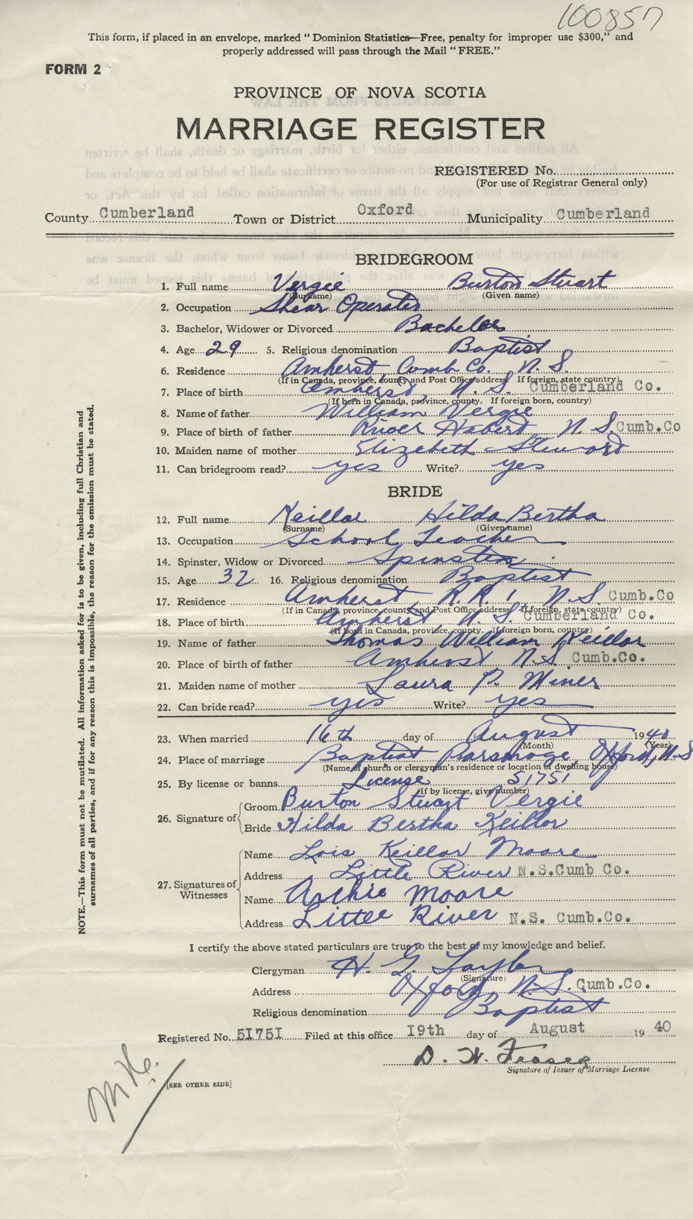 100857
This form, if placed in an envelope, marked " Dominion Statistics—Free, penalty for improper use $300," and
properly addressed will pass through the Mail "FREE."
FORM 2
PROVINCE OF NOVA SCOTIA
MARRIAGE REGISTER
REGISTERED No.
(For use of Registrar General only)
County Cumberland Town or District Oxford Municipality Cumberland
BRIDEGROOM
1. Full name Vergie Burton Stuart
(Surname) (Given name)
2. Occupation Shear Operator
3. Bachelor, Widower or Divorced Bachelor
4. Age 29 5. Religious denomination Baptist
6. Residence Amherst, Cumb Co. N. S.
(If in Canada, province, county and Post Office address If foreign, state country)
7. Place of birth Amherst, N. S. Cumberland Co.
(If born in Canada, province, county. If foreign born, country)
8. Name of father William Vergie
9. Place of birth of father River Hebert N. S. Cumb.Co
10. Maiden name of mother Elizabeth Steward
11. Can bridegroom read? yes Write? yes
BRIDE
12. Full name Keillor Hilda Bertha
(Surname) (Given name)
13. Occupation School Teacher
14. Spinster, Widow or Divorced Spinster
15. Age 32 16. Religious denomination Baptist
17. Residence Amherst, R.R. 1, N.S. Cumb.Co
(If in Canada province, county and Post Office address If foreign, state country)
18. Place of birth Amherst N. S. Cumberland Co.
(If born in Canada, province, county. If foreign born, country)
19. Name of father Thomas William Keillor
20. Place of birth of father Amherst N.S. Cumb.Co.
21. Maiden name of mother Laura P. Miner
22. Can bride read? yes Write? yes
23. When married 16th day of August 1940
(Month) (Year)
24. Place of marriage Baptist Parsonage, Oxford, N.S
(Name of church or clergyman's residence or location of dwelling house)
25. By license or banns License 51751
(If by license, give number)
26. Signature of
Groom Burton Stuart Vergie
Bride Hilda Bertha Keillor
27. Signatures of Witnesses
Name Lois Keillor Moore
Address Little River N.S. Cumb Co.
Name Archie Moore
Address Little River N.S. Cumb.Co.
I certify the above stated particulars are true to the best of my knowledge and belief.
Clergyman H. G. Taylor
(Signature)
Address Oxford, N.S. Cumb.Co.
Religious denomination Baptist
Registered No. 51751 Filed at this office 19th day of August 19 40
D. W. Fraser
Signature of Issuer of Marriage License
[SEE OTHER SIDE]
NOTE.—This form must not be mutilated. All information asked for is to be given, including full Christian and
surnames of all parties, and if for any reason this is impossible, the reason for the omission must be stated.